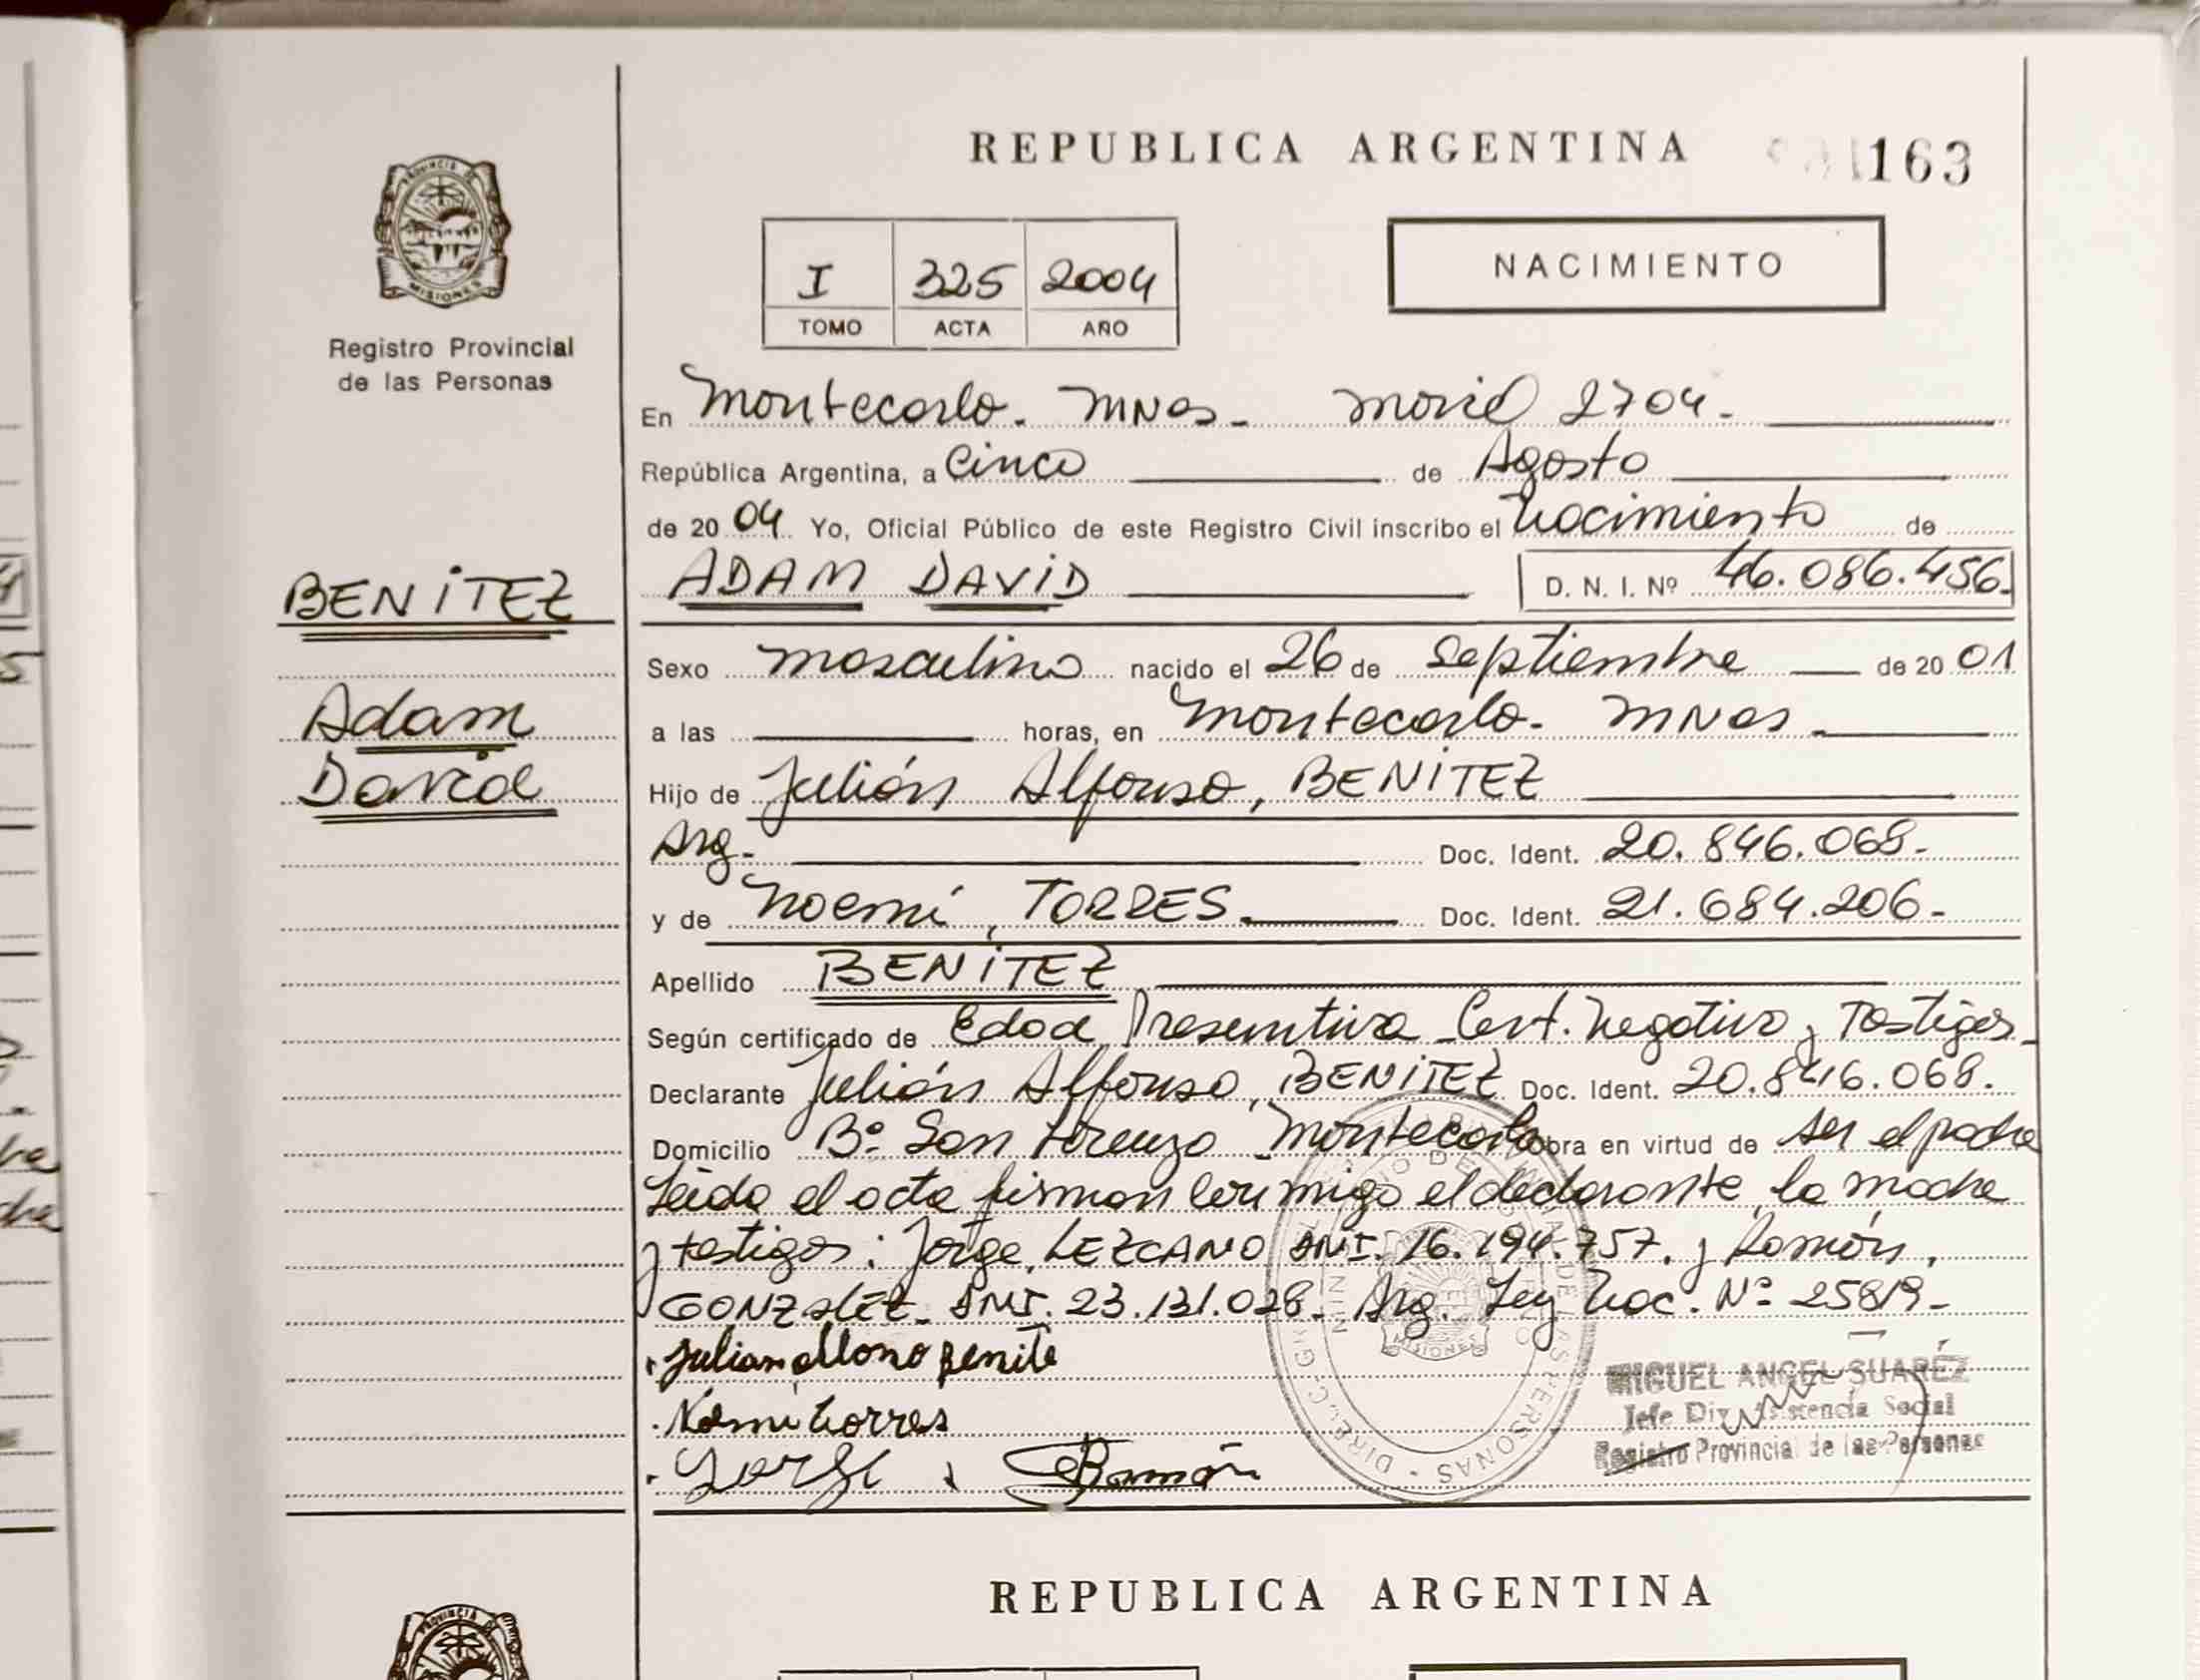 REPUBLICA ARGENTINA
163
PROVINCIA DE
MISIONES
Registro Provincial
de las Personas
I 325 2004
TOMO ACTA AÑO
NACIMIENTO
En Montecarlo - MNes - Movil 2704 -
República Argentina, a Cinco de Agosto
de 20 04 Yo, Oficial Público de este Registro Civil inscribo el Nacimiento de
BENITEZ
ADAM DAVID D. N. I. Nº 46.086.456.
Sexo masculino nacido el 26 de Septiembre de 20 01
Adam
a las horas, en Montecarlo - MNes -
David
Hijo de Julián Alfonso, BENITEZ
Arg - Doc. Ident. 20.846.068 -
y de Noemí, TORRES. Doc. Ident. 21.684.206 -
Apellido BENITEZ
Según certificado de Edad Presuntiva - Cert. Negativo y Testigos -
Declarante Julián Alfonso, BENITEZ Doc. Ident. 20.846.068.
Domicilio Bº San Lorenzo - Montecarlo obra en virtud de ser el padre
Leída el acta firman conmigo el declarante, la madre
y testigos: Jorge, LEZCANO DNI. 16.194.757. y Ramón,
GONZALEZ - DNI. 23.131.028 - Arg. Ley Nac. Nº 25819 -
Julian Benite
Noemi torres
Jorge Ramón
MIGUEL ANGEL SUAREZ
Jefe Div. Asistencia Social
Registro Provincial de las Personas
REPUBLICA ARGENTINA
PROVINCIA DE